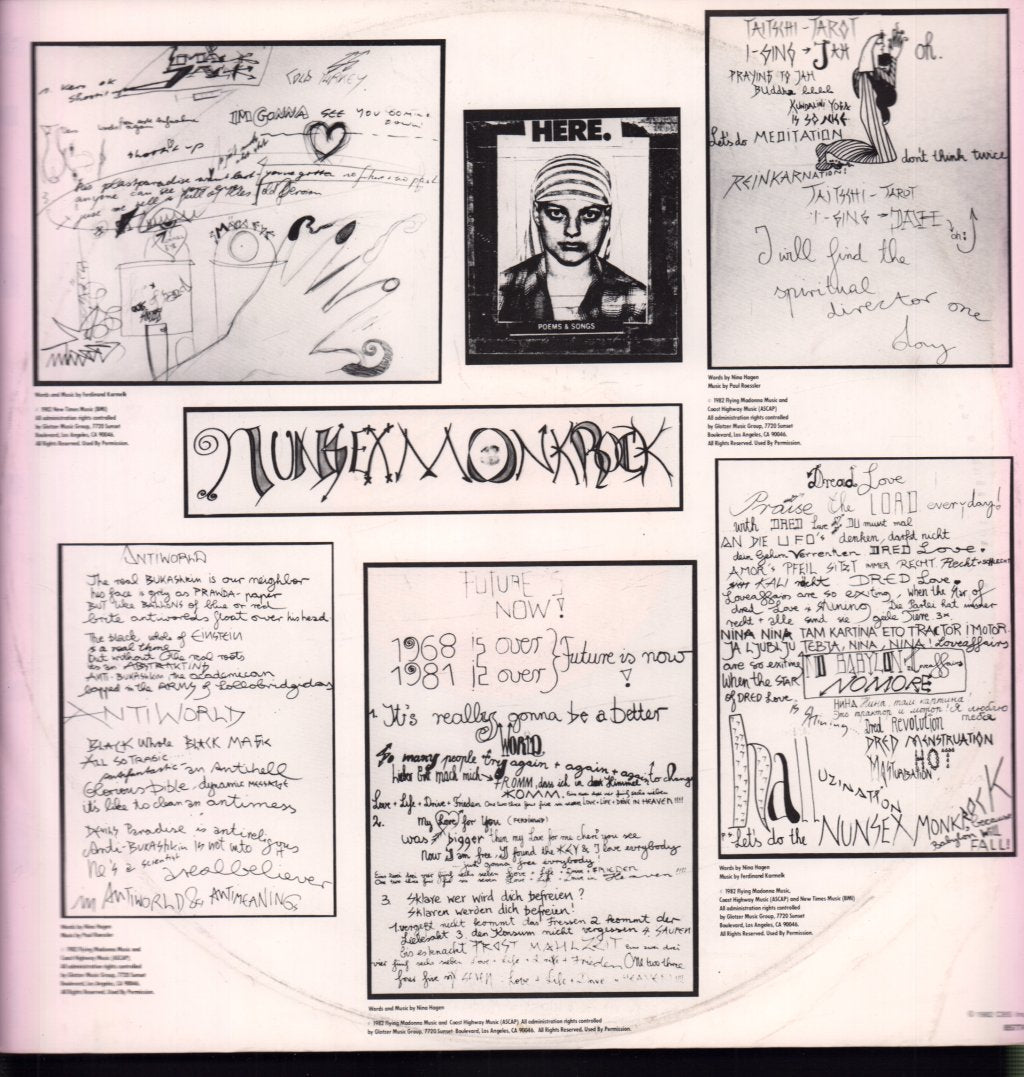 SMACK
JACK
COLD TURKEY
IM GONNA SEE YOU COMING
DOWN!
again
shoot it up
anyone can see
MAGS EYE
Words and Music by Ferdinand Karmelk
© 1982 New Times Music (BMI)
All administration rights controlled
by Glotzer Music Group, 7720 Sunset
Boulevard, Los Angeles, CA 90046.
All Rights Reserved. Used By Permission.
HERE.
POEMS & SONGS
TAITSCHI - TAROT
I-GING → JAH oh.
PRAYING TO JAH
Buddha
KUNDALINI YOGA
IS SO NICE
Let's do MEDITATION
don't think twice
REINKARNATION!
TAITSCHI - TAROT
I - GING →
oh!
I will find the
spiritual
director one
day
Words by Nina Hagen
Music by Paul Roessler
© 1982 Flying Madonna Music and
Coast Highway Music (ASCAP)
All administration rights controlled
by Glotzer Music Group, 7720 Sunset
Boulevard, Los Angeles, CA 90046.
All Rights Reserved. Used By Permission.
NUNSEXMONKROCK
ANTIWORLD
The real BUKASHKIN is our neighbor
his face is grey as PRAWDA-paper
BUT like BALLONS of blue or red
brite antiworlds float over his head
The black whole of EINSTEIN
is a real thing
but without the real roots
its an ABSTRAKTING
ANTI-BUKASHKIN the academician
lapped in the ARMS of Lollobridgidas
ANTIWORLD
BLACK Whole BLACK MAGIK
ALL SO TRAGIC
antifantastic - an Antihell
Glorious bible - dynamic MESSAGE
it's like to clean an antimess
DEVILS Paradise is antireligious
Anti-BUKASHKIN IS not into it
He's a scientist
a real believer
in ANTIWORLD & ANTIMEANINGS
Words by Nina Hagen
Music by Paul Roessler
© 1982 Flying Madonna Music and
Coast Highway Music (ASCAP)
All administration rights controlled
by Glotzer Music Group, 7720 Sunset
Boulevard, Los Angeles, CA 90046.
All Rights Reserved. Used By Permission.
FUTURE IS
NOW!
1968 is over } Future is now
1981 is over } !
1. It's really gonna be a better
WORLD.
So many people try again + again + again to change
Lieber Gott mach mich FROMM, dass ich in den Himmel
KOMM. Eins zwei drei vier fünf sechs sieben
Love + Life + Drive + Frieden One two three four five six seven Love + Life + Drive IN HEAVEN!!!!
2. My Love for You (PERSONALY)
was bigger then my love for me cheri you see
Now I am free - I found the KEY & I love evrybody
just gonna free evrybody!
Eins zwei drei vier fünf sechs sieben Love + Life + Drive + FRIEDEN
One two three four five six seven Love + Life + Drive in Heaven!!!!
3. Sklave wer wird dich befreien?
Sklaven werden dich befreien!
1 vergesst nicht kommt das Fressen 2 kommt der
Liebesakt 3. den Konsum nicht vergessen 4. SAUFEN
bis es knackt PROST MAHLZEIT Eins zwei drei
vier fünf sechs sieben Love + Life + Drive + Frieden One two three
four five six SEVEN Love + Life + Drive + HEAVEN!!!!
Words and Music by Nina Hagen
© 1982 Flying Madonna Music and Coast Highway Music (ASCAP) All administration rights controlled
by Glotzer Music Group, 7720 Sunset Boulevard, Los Angeles, CA 90046. All Rights Reserved. Used By Permission.
Dread Love
Praise the LORD everyday!
with DRED Love & DU must mal
AN DIE UFO's denken, darfst nicht
dein Gehirn Verrenken DRED Love.
AMOR's PFEIL SITZT IMMER RECHT
KALI rächt DRED Love.
Loveaffairs are so exiting, when the Star of
dred Love is shining. Die Partei hat wieder
recht + alle sind sie geile Tiere. 3x
NINA NINA TAM KARTINA ETO TRAKTOR I MOTOR.
JA LJUBLJU TEBJA, NINA, NINA! Loveaffairs
are so exiting
NO BABYLON Loveaffairs
NOMORE
when the STAR
of DRED Love
IS shining
НИНА Нина, там картина!
Это трактор и мотор. Я люблю
тебя
Dred Revolution
DRED MENSTRUATION
HOT
MASTURBATION!
halluZINATION!
Let's do the NUNSEX MONKROCK
because
Babylon WILL
FALL!
Words by Nina Hagen
Music by Ferdinand Karmelk
© 1982 Flying Madonna Music,
Coast Highway Music (ASCAP) and New Times Music (BMI)
All administration rights controlled
by Glotzer Music Group, 7720 Sunset
Boulevard, Los Angeles, CA 90046.
All Rights Reserved. Used By Permission.
© 1982 CBS